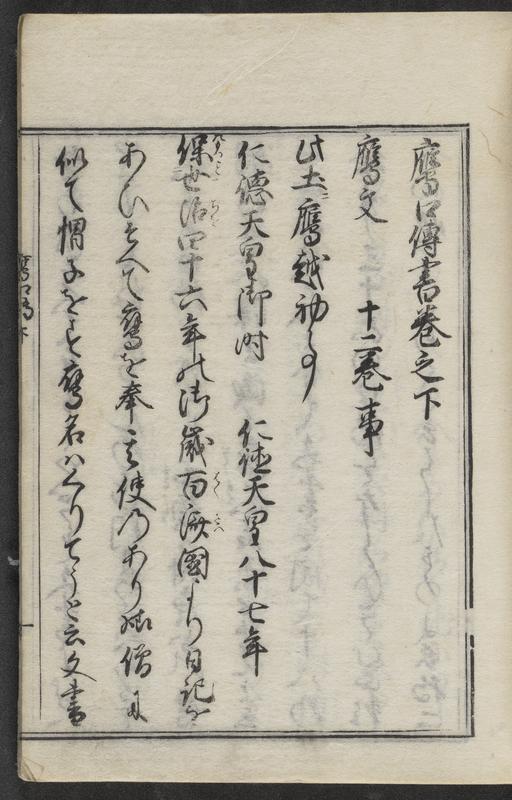 鷹口傳書巻之下
鷹文　十二巻事
此土ニ鷹越初る事
仁徳天皇御時　仁徳天皇八十七年
保世治四十六年の御歳百済國より日記を
あひそへて鷹を奉る其使のあり様僧に
似て帽子をき鷹名ハくりてうと云文書